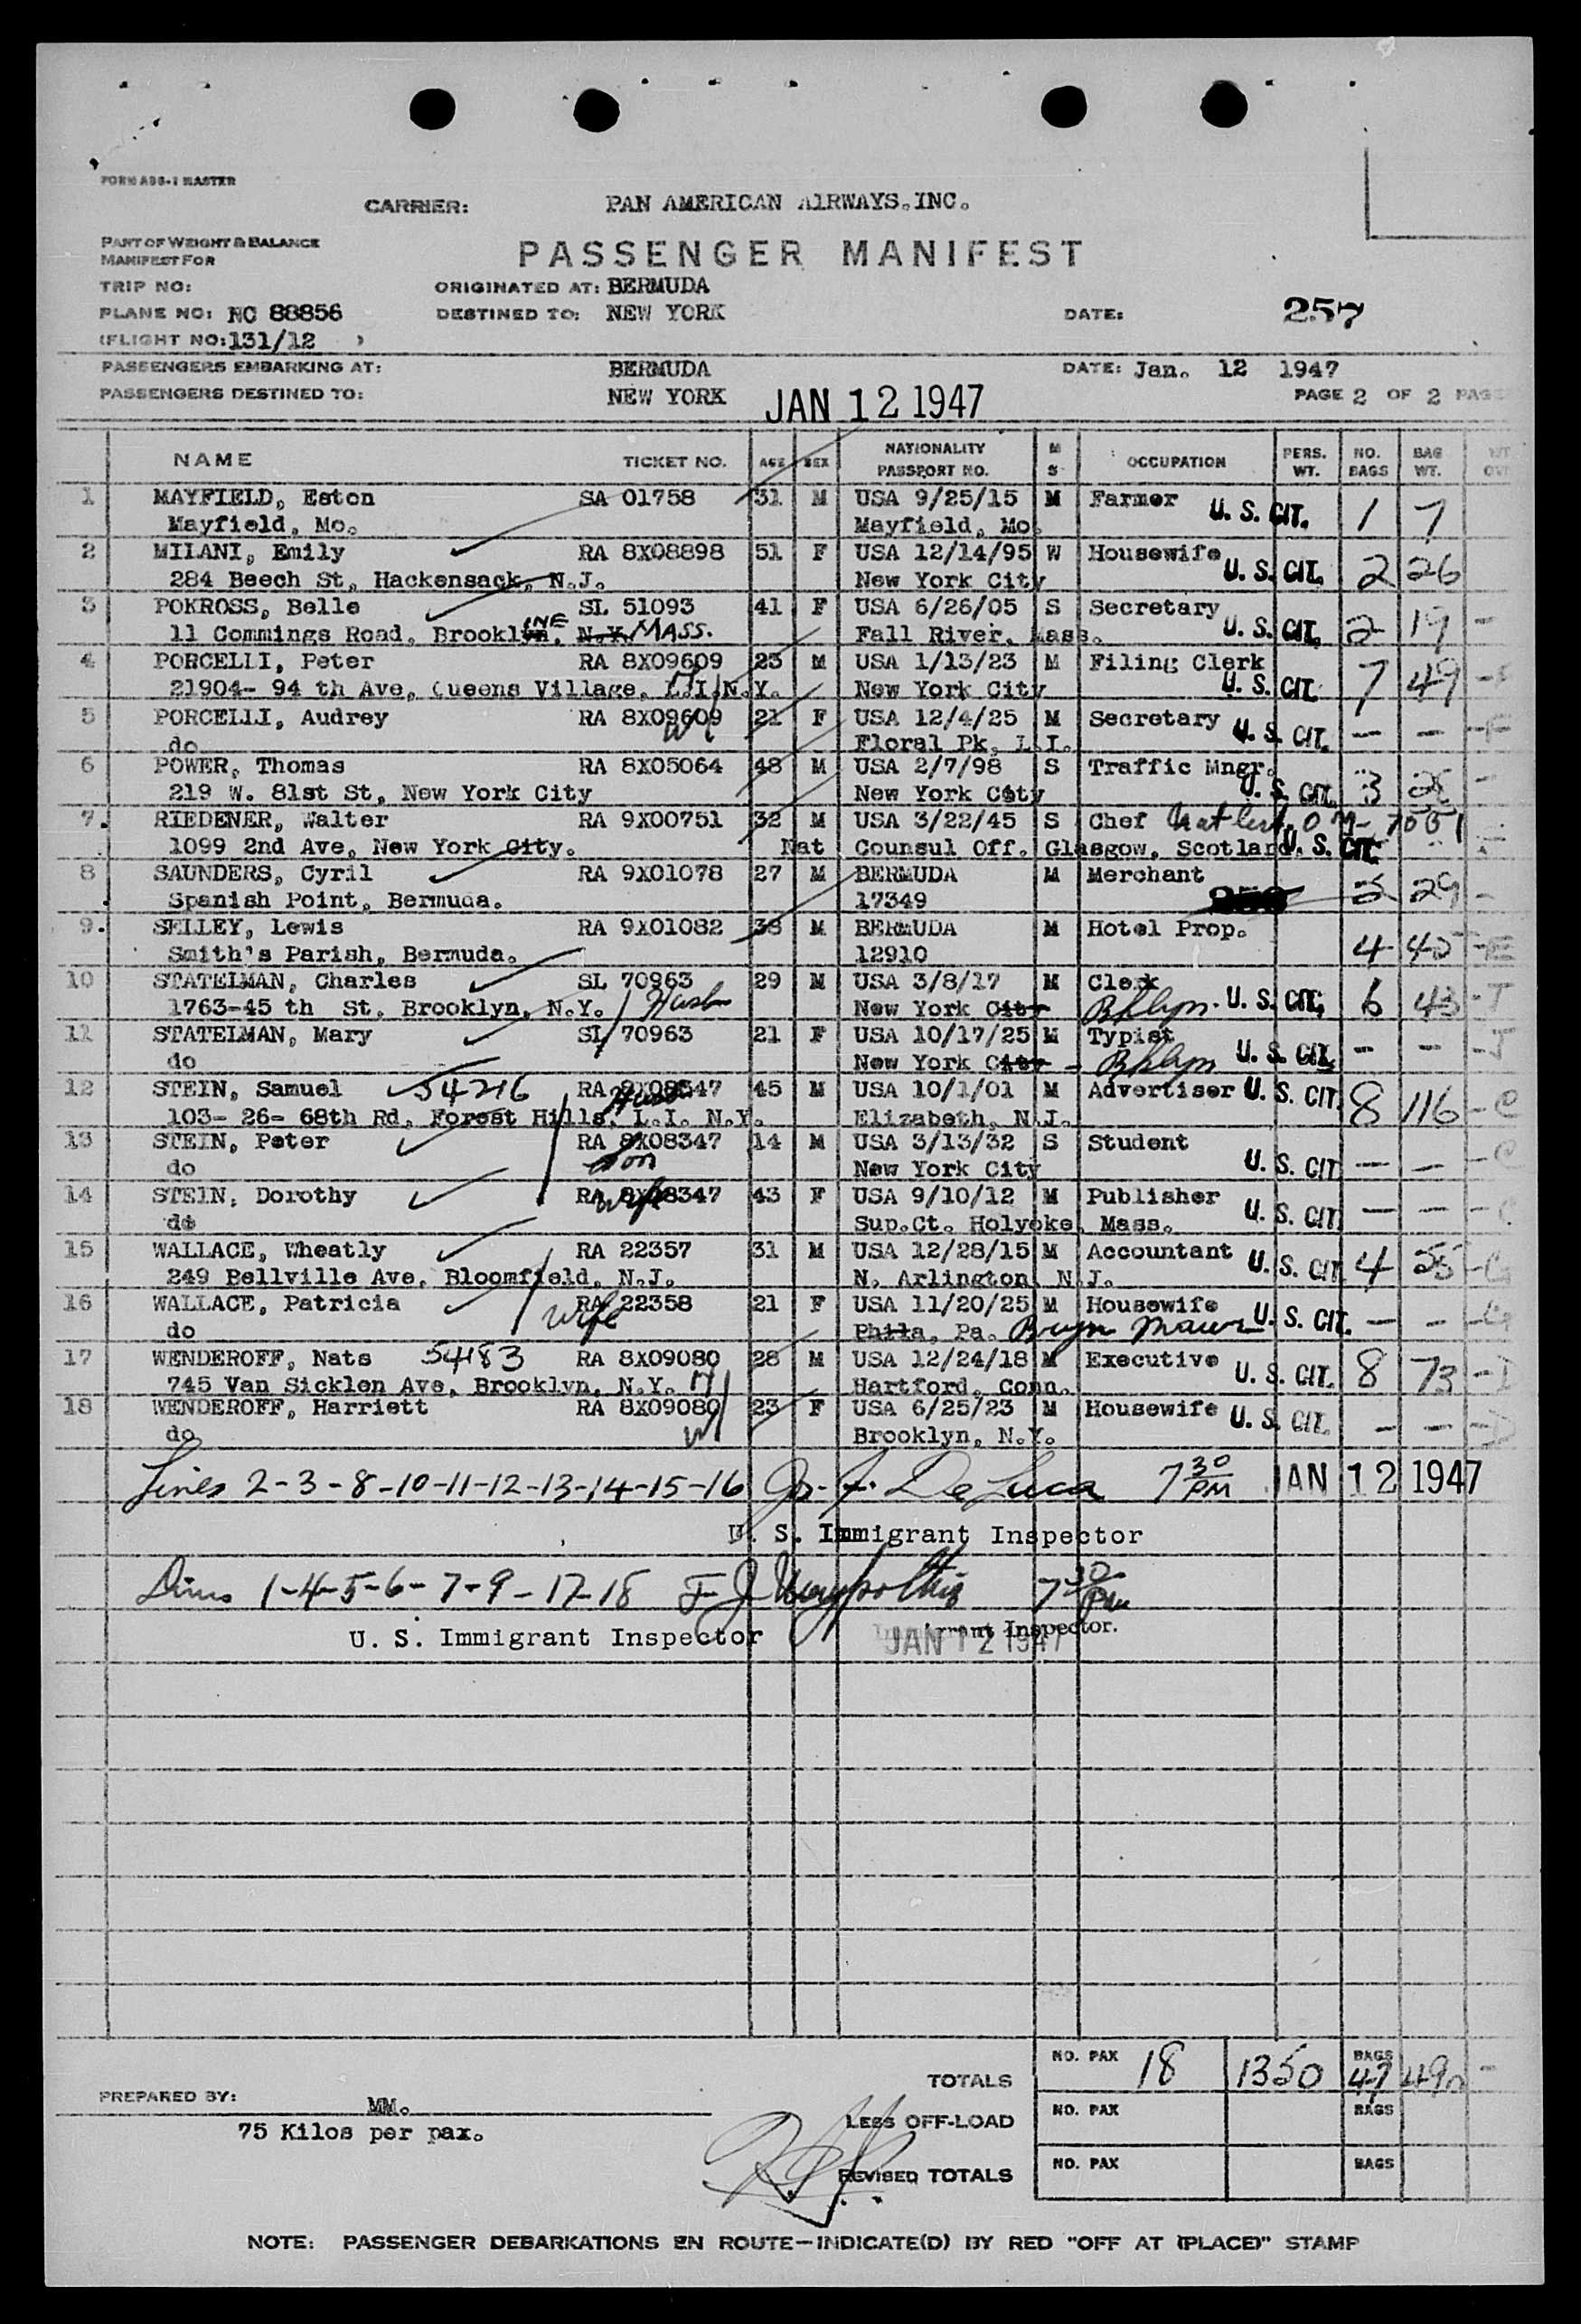 FORM ABS-1 MASTER
CARRIER: PAN AMERICAN AIRWAYS.INC.
PART OF WEIGHT & BALANCE
MANIFEST FOR
PASSENGER MANIFEST
TRIP NO: ORIGINATED AT: BERMUDA
PLANE NO: NC 88856 DESTINED TO: NEW YORK DATE: 257
(FLIGHT NO: 131/12 )
PASSENGERS EMBARKING AT: BERMUDA DATE: Jan. 12 1947
PASSENGERS DESTINED TO: NEW YORK JAN 12 1947 PAGE 2 OF 2 PAGE
NAME TICKET NO. AGE SEX NATIONALITY PASSPORT NO. M S OCCUPATION PERS. WT. NO. BAGS BAG WT. WT. OV
1 MAYFIELD, Eston SA 01758 31 M USA 9/25/15 M Farmer U. S. CIT. 1 7
Mayfield, Mo. Mayfield, Mo.
2 MILANI, Emily RA 8X08898 51 F USA 12/14/95 W Housewife U. S. CIT. 2 26
284 Beech St, Hackensack, N.J. New York City
3 POKROSS, Belle SL 51093 41 F USA 6/26/05 S Secretary U. S. CIT. 2 19 -
11 Commings Road, Brooklyn, INE N.Y. MASS. Fall River, Mass.
4 PORCELLI, Peter RA 8X09609 23 M USA 1/13/23 M Filing Clerk U. S. CIT. 7 49 -
21904- 94 th Ave, Queens Village, L.I.N.Y. H New York City
5 PORCELLI, Audrey RA 8X09609 21 F USA 12/4/25 M Secretary U. S. CIT. - - -F
do W Floral Pk, L.I.
6 POWER, Thomas RA 8X05064 48 M USA 2/7/98 S Traffic Mngr. U. S. CIT. 3 28 -
219 W. 81st St, New York City New York City
7. RIEDENER, Walter RA 9X00751 32 M USA 3/22/45 S Chef Nat Cert. O M- 7051
1099 2nd Ave, New York City. Nat Counsul Off. Glasgow, Scotland. U. S. CIT.
8 SAUNDERS, Cyril RA 9X01078 27 M BERMUDA M Merchant 3 29 -
Spanish Point, Bermuda. 17349
9. SELLEY, Lewis RA 9X01082 38 M BERMUDA M Hotel Prop. 4 45 -E
Smith's Parish, Bermuda. 12910
10 STATELMAN, Charles SL 70963 29 M USA 3/8/17 M Clerk U. S. CIT. 6 43 -J
1763-45 th St. Brooklyn, N.Y. Husb New York City Bklyn.
11 STATELMAN, Mary SL 70963 21 F USA 10/17/25 M Typist U. S. CIT. - - -J
do New York City - Bklyn
12 STEIN, Samuel 54216 RA 8X08347 45 M USA 10/1/01 M Advertiser U. S. CIT. 8 116 -C
103- 26- 68th Rd, Forest Hills, L.I. N.Y. Husb Elizabeth, N.J.
13 STEIN, Peter RA 8X08347 14 M USA 3/13/32 S Student U. S. CIT - - -C
do Son New York City
14 STEIN, Dorothy RA 8X08347 43 F USA 9/10/12 M Publisher U. S. CIT - - -C
do Wife Sup.Ct. Holyoke, Mass.
15 WALLACE, Wheatly RA 22357 31 M USA 12/28/15 M Accountant U. S. CIT. 4 55 -G
249 Bellville Ave, Bloomfield, N.J. N. Arlington N.J.
16 WALLACE, Patricia RA 22358 21 F USA 11/20/25 M Housewife U. S. CIT. - - -G
do Wife Phila, Pa. Bryn Mawr
17 WENDEROFF, Nats 54183 RA 8X09080 28 M USA 12/24/18 M Executive U. S. CIT. 8 73 -D
745 Van Sicklen Ave, Brooklyn, N.Y. H Hartford, Conn.
18 WENDEROFF, Harriett RA 8X09080 23 F USA 6/25/23 M Housewife U. S. CIT. - - -D
do W Brooklyn, N.Y.
Lines 2-3-8-10-11-12-13-14-15-16 Jos. F. De Luca 7 30 PM JAN 12 1947
U. S. Immigrant Inspector
Lines 1-4-5-6-7-9-17-18 F J 7 30 PM
U. S. Immigrant Inspector JAN 12 1947 Immigrant Inspector.
TOTALS NO. PAX 18 1350 BAGS 47 490 -
PREPARED BY: MM.
LESS OFF-LOAD NO. PAX BAGS
75 Kilos per pax.
REVISED TOTALS NO. PAX BAGS
NOTE: PASSENGER DEBARKATIONS EN ROUTE—INDICATE(D) BY RED "OFF AT (PLACE)" STAMP